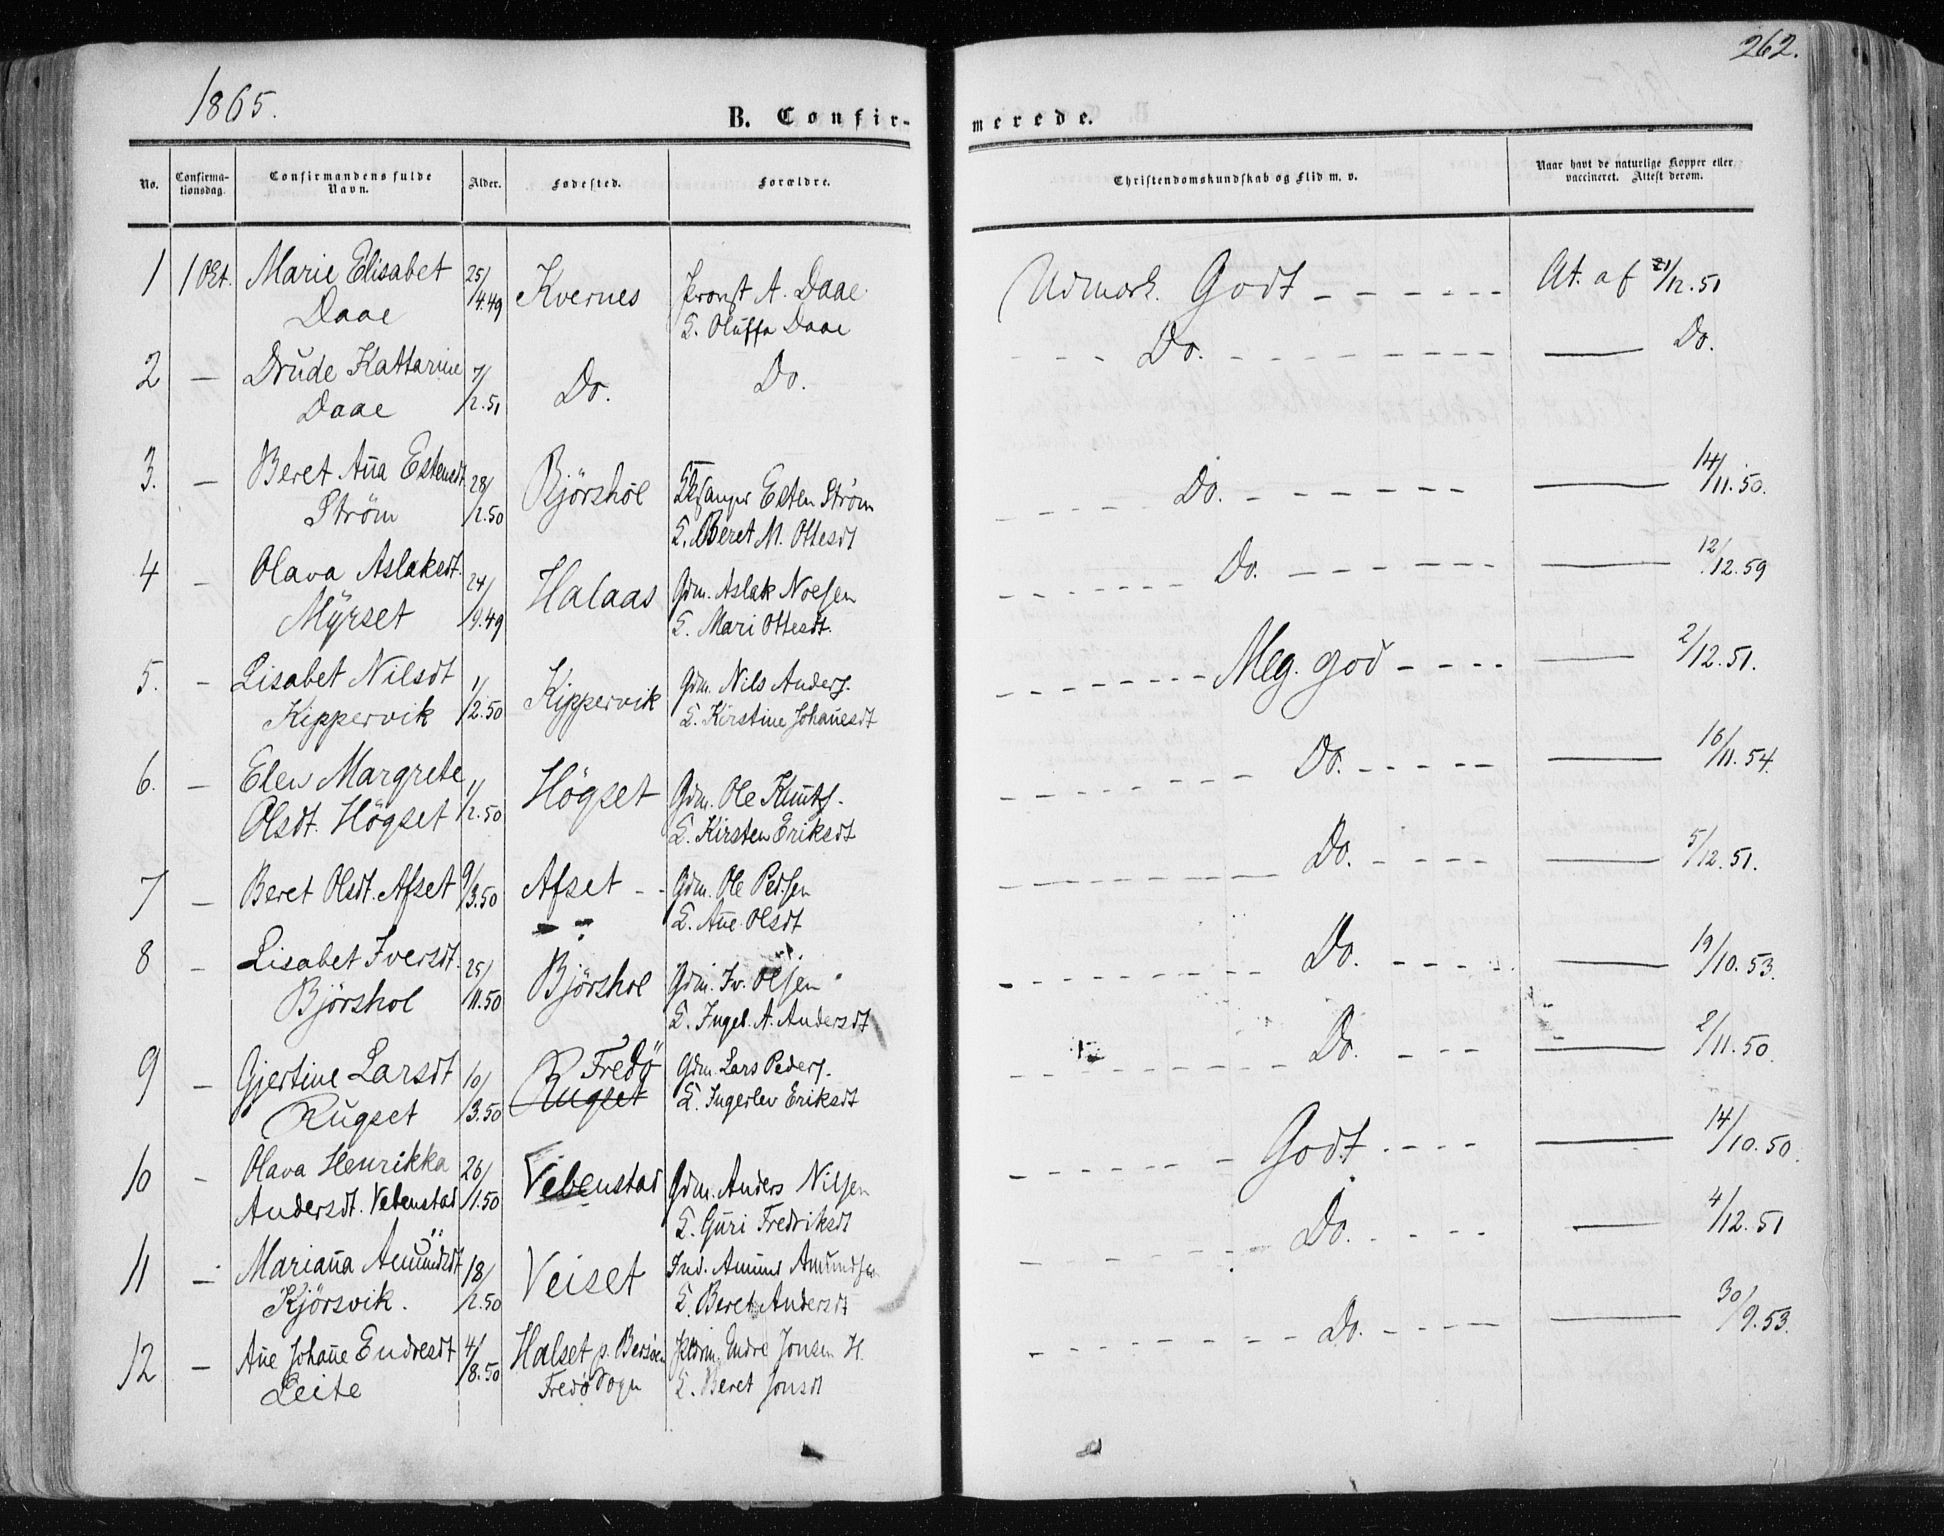 262.
1865.
B. Confir-
merede.
No.
Confirma-
tionsdag.
Confirmandens fulde
Navn.
Alder.
Fødested.
Forældre.
Christendomskundskab og Flid m. v.
Naar havt de naturlige Kopper eller
vaccineret. Attest derom.
1 1 Okt. Marie Elisabet 25/4.49 Kvernes Provst A. Daae Udmærk. Godt At. af 21/12.51
Daae E. Oluffa Daae
2 — Drude Kattarine 7/12.51 Do. Do. Do. — Do.
Daae
3. — Beret Ana Estensdt 28/12.50 Björshol Esten Strøm Do. — 14/11.50.
Strøm E. Beret M. Ottesdt
4 — Olava Aslaksdt. 24/9.49 Halaas Gdm. Aslak Noesen Do. — 12/12.59
Myrset E. Mari Ottesdt.
5. — Lisabet Nilsdt 1/12.50 Kippervik Gdm. Nils Anders. Meg. god — 2/12.51.
Kippervik E. Kirstine Johanesdt
6. — Elen Margrete 1/12.50 Högset Gdm. Ole Knuts. Do. — 16/11.54.
Olsdt. Högset E. Kirsten Eriksdt
7 — Beret Olsdt. Afset 9/3.50 Afset Gdm. Ole Pedsen Do. — 5/12.51.
E. Ane Olsdt
8 — Lisabet Iversdt. 25/11.50 Björshol Gdm. Iv. Olsen Do. — 19/10.53.
Björshol E. Ingeb. A. Andersdt
9 — Gjertine Larsdt 10/3.50 Fredö Gdm. Lars Peders. Do. — 2/11.50.
Rugset Rugset E. Ingerlev Eriksdt
10 — Olava Henrikka 26/1.50 Vebenstad Gdm. Anders Nilsen Godt — 14/10.50.
Andersdt. Vebenstad E. Guri Fredriksdt
11 — Mariana Amundsdt 18/12.50 Veiset Ind. Amund Amundsen Do. — 4/12.51
Kjörsvik. E. Beret Andersdt
12 — Ane Johane Endresdt 4/8.50 Halset p. Endre Jonsen H. Do. — 30/9.53.
Leite Fredö Sogn E. Beret Jonsdt